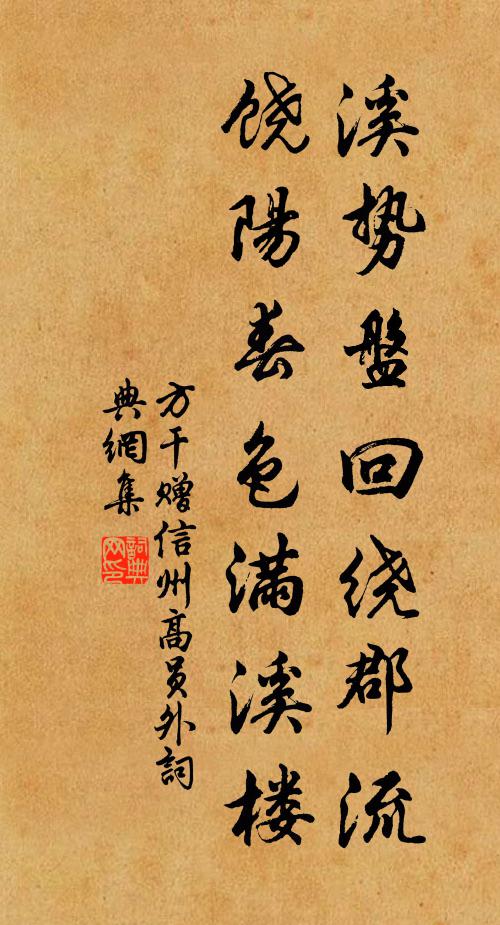 溪势盤回绕郡流
饶陽春色满溪楼
方干赠信州高员外詞
典網集
詞典
网印